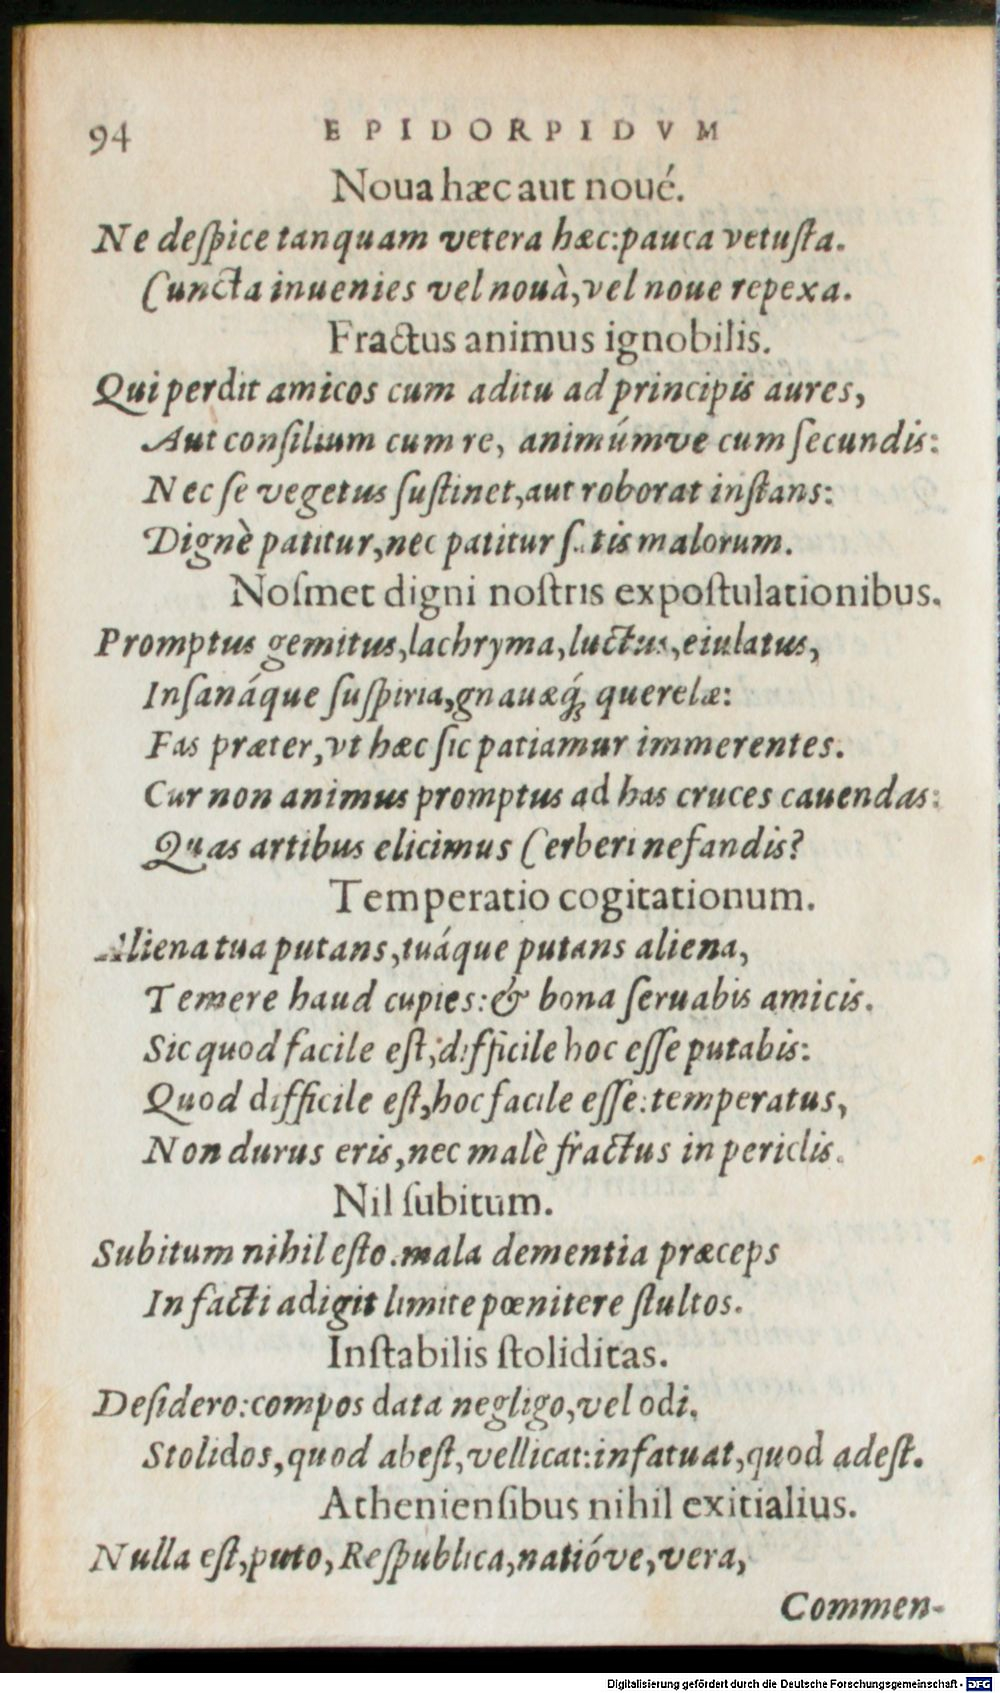 94 EPIDORPIDVM
Noua hæc aut noué.
Ne deſpice tanquam vetera hæc: pauca vetuſta.
Cuncta inuenies vel nouà, vel noue repexa.
Fractus animus ignobilis.
Qui perdit amicos cum aditu ad principis aures,
Aut conſilium cum re, animúmve cum ſecundis:
Nec ſe vegetus ſuſtinet, aut roborat inſtans:
Dignè patitur, nec patitur ſatis malorum.
Noſmet digni noſtris expoſtulationibus.
Promptus gemitus, lachryma, luctus, eiulatus,
Inſanáque ſuſpiria, gnauæq́; querelæ:
Fas præter, vt hæc ſic patiamur immerentes.
Cur non animus promptus ad has cruces cauendas:
Quas artibus elicimus Cerberi nefandis?
Temperatio cogitationum.
Aliena tua putans, tuáque putans aliena,
Temere haud cupies: & bona ſeruabis amicis.
Sic quod facile eſt, difficile hoc eſſe putabis:
Quod difficile eſt, hoc facile eſſe: temperatus,
Non durus eris, nec malè fractus in periclis.
Nil ſubitum.
Subitum nihil eſto. mala dementia præceps
In facti adigit limite pœnitere ſtultos.
Inſtabilis ſtoliditas.
Deſidero: compos data negligo, vel odi.
Stolidos, quod abeſt, vellicat: infatuat, quod adeſt.
Athenienſibus nihil exitialius.
Nulla eſt, puto, Reſpublica, natióve, vera,
Commen-
Digitalisierung gefördert durch die Deutsche Forschungsgemeinschaft - DFG